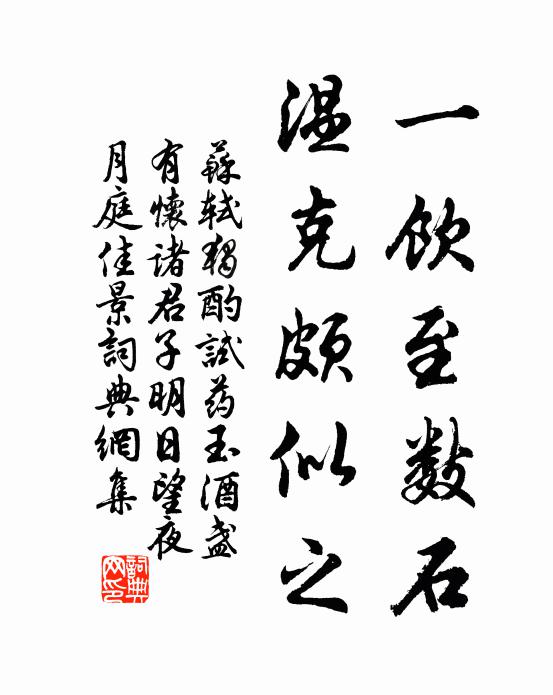 一飲至數石
温克頗似之
蘇軾獨酌試药玉酒盏
有懷诸君子明日望夜
月庭佳景詞典網集
詞典
网印